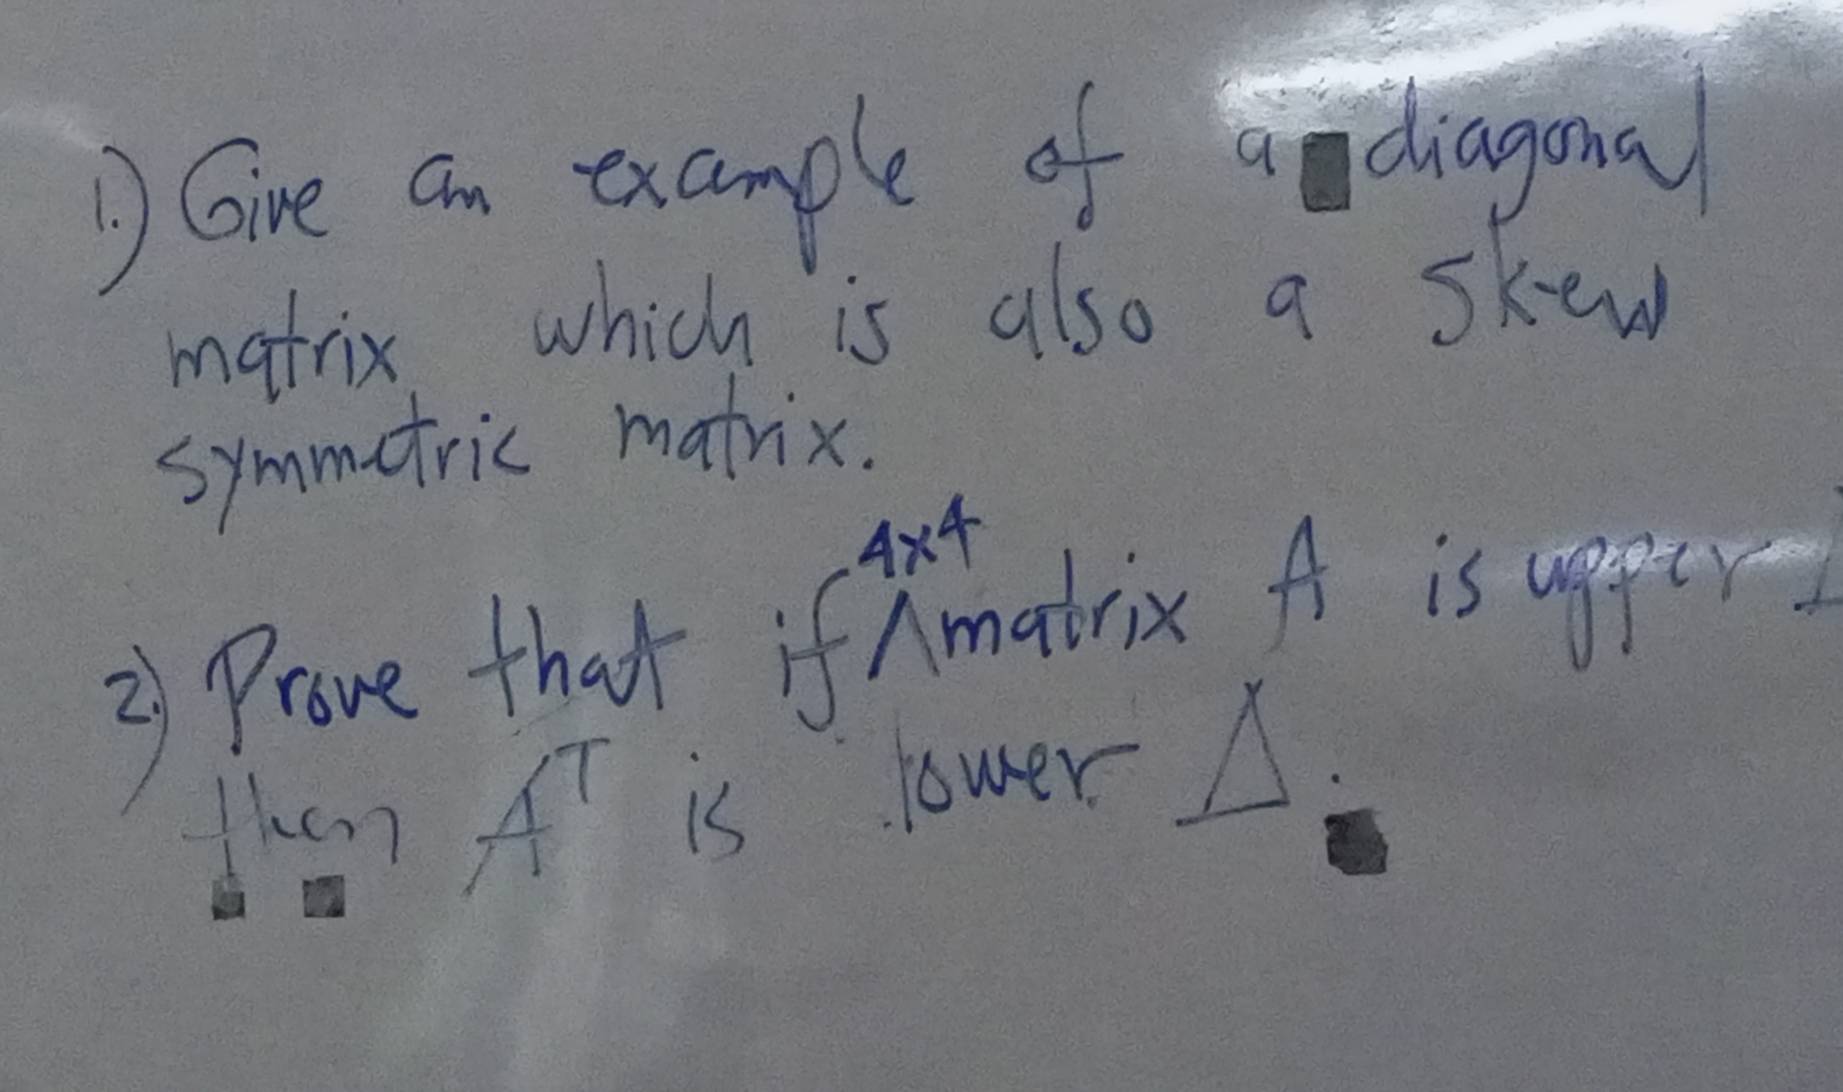 1.) Give an example of a diagonal
matrix which is also a skew
symmetric matrix.
4x4
2.) Prove that if ∧ matrix A is upper Δ
then Aᵀ is lower Δ.